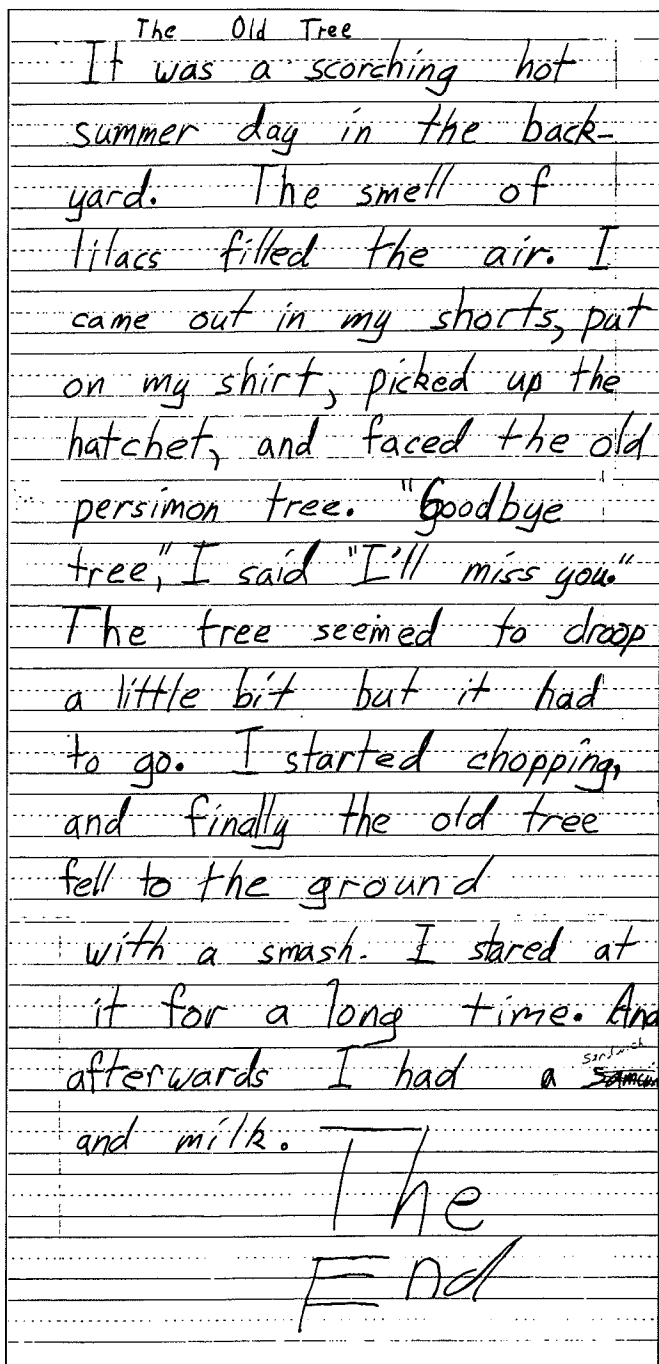 The Old Tree
It was a scorching hot
summer day in the back-
yard. The smell of
lilacs filled the air. I
came out in my shorts, put
on my shirt, picked up the
hatchet, and faced the old
persimon tree. "Goodbye
tree," I said "I'll miss you."
The tree seemed to droop
a little bit but it had
to go. I started chopping,
and finally the old tree
fell to the ground
with a smash. I stared at
it for a long time. And
afterwards I had a sandwich
and milk.
The
End